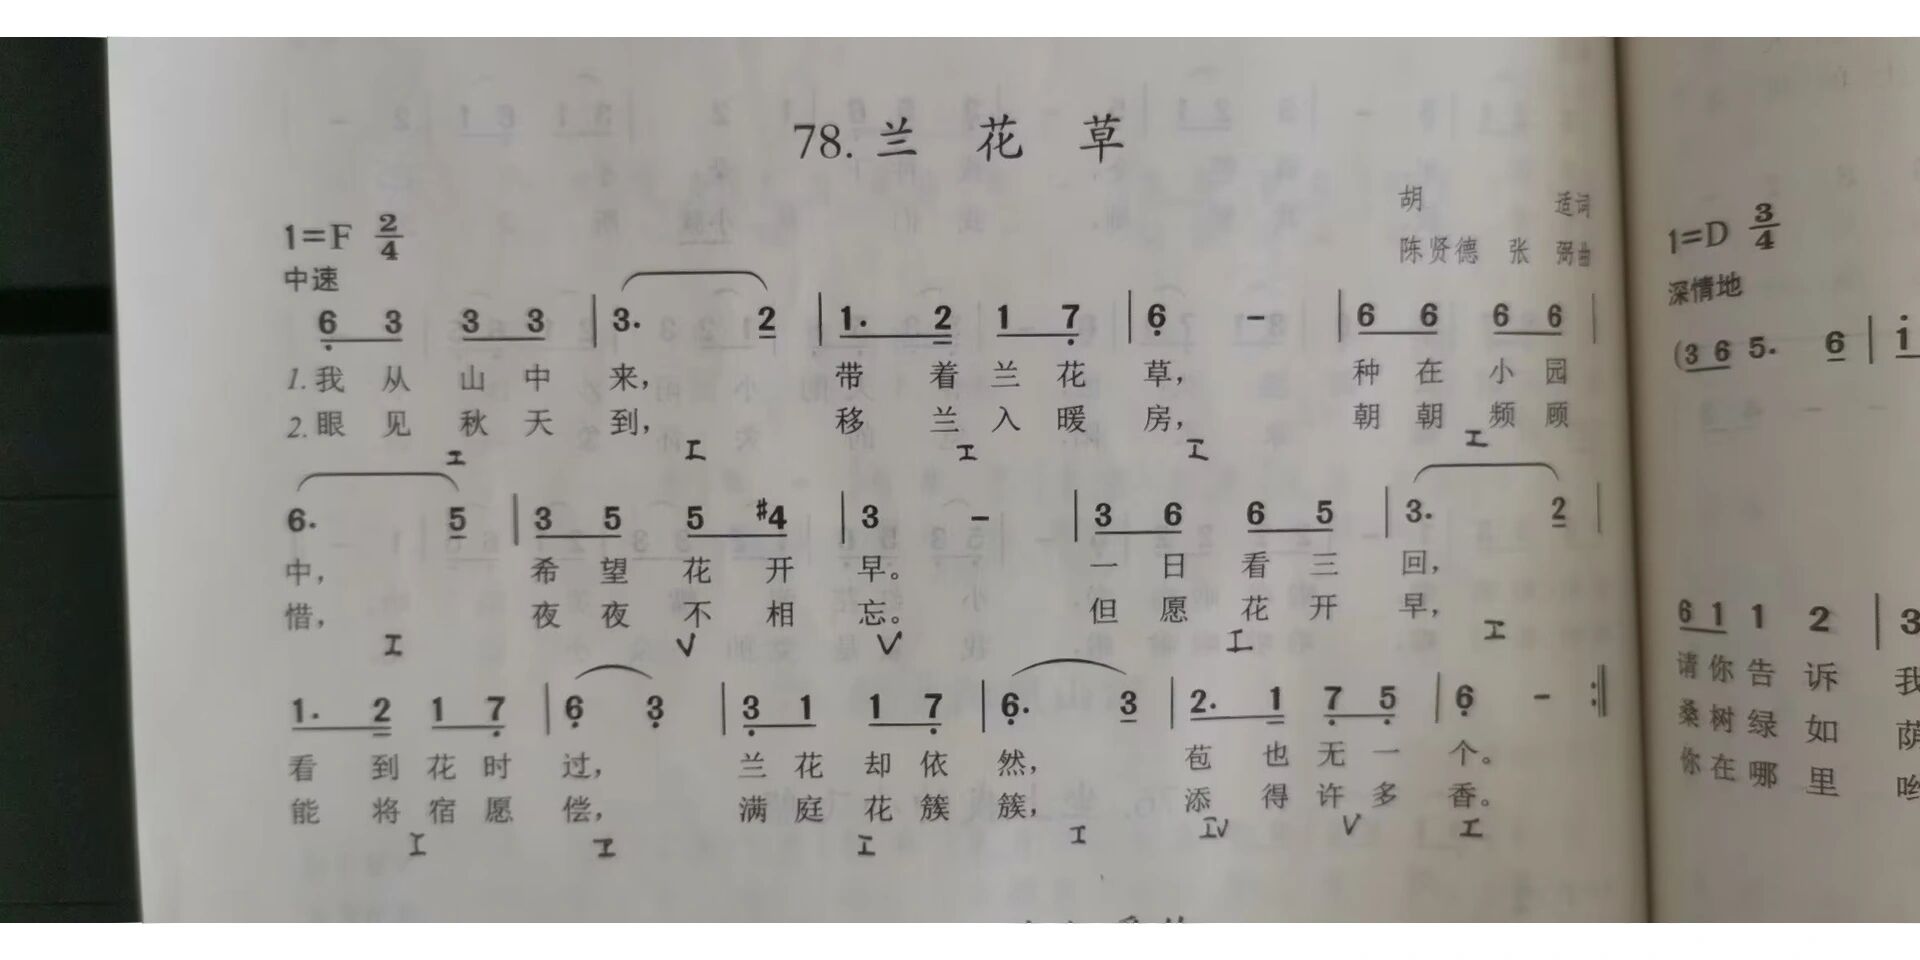 78. 兰 花 草
胡 适词
陈贤德 张 弼曲
1=F 2/4
中速
6 3 3 3 | 3. 2 | 1. 2 1 7 | 6 - | 6 6 6 6 |
1.我 从 山 中 来, 带 着 兰 花 草, 种 在 小 园
2.眼 见 秋 天 到, 移 兰 入 暖 房, 朝 朝 频 顾
I I I I I
6. 5 | 3 5 5 #4 | 3 - | 3 6 6 5 | 3. 2 |
中, 希 望 花 开 早。 一 日 看 三 回,
惜, 夜 夜 不 相 忘。 但 愿 花 开 早,
I V V I I
1. 2 1 7 | 6 3 | 3 1 1 7 | 6. 3 | 2. 1 7 5 | 6 - :‖
看 到 花 时 过, 兰 花 却 依 然, 苞 也 无 一 个。
能 将 宿 愿 偿, 满 庭 花 簇 簇, 添 得 许 多 香。
I I I I IV V I
1=D 3/4
深情地
(3 6 5. 6 | 1
6 1 1 2 | 3
请你告 诉 我
桑树绿 如 荫
你在哪 里 哟